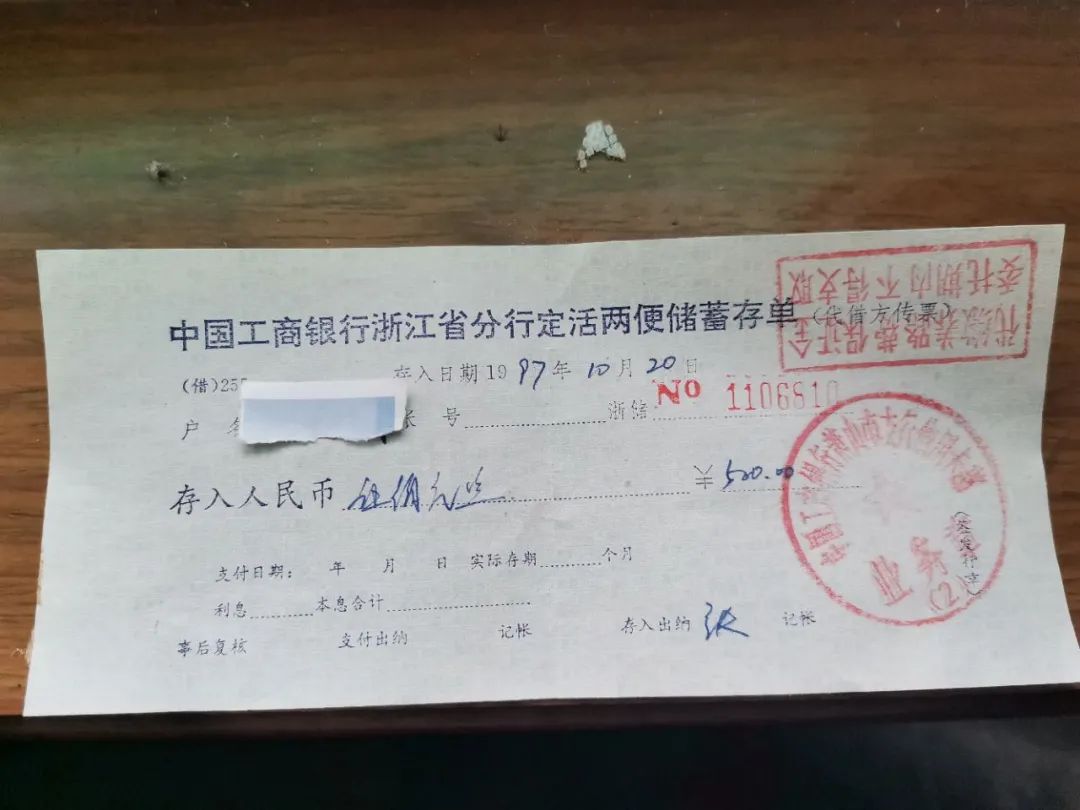 中国工商银行浙江省分行定活两便储蓄存单(代借方传票)
代缴养路费保证金
委托期内不得支取
(借)255
存入日期1997年10月20日
户名
帐号
浙储
No 1106810
存入人民币 伍佰元正
500.00
(签发存章)
支付日期: 年 月 日 实际存期 个月
利息 本息合计
事后复核 支付出纳 记帐 存入出纳 张 记帐
中国工商银行萧山市支行
业务章
(2)